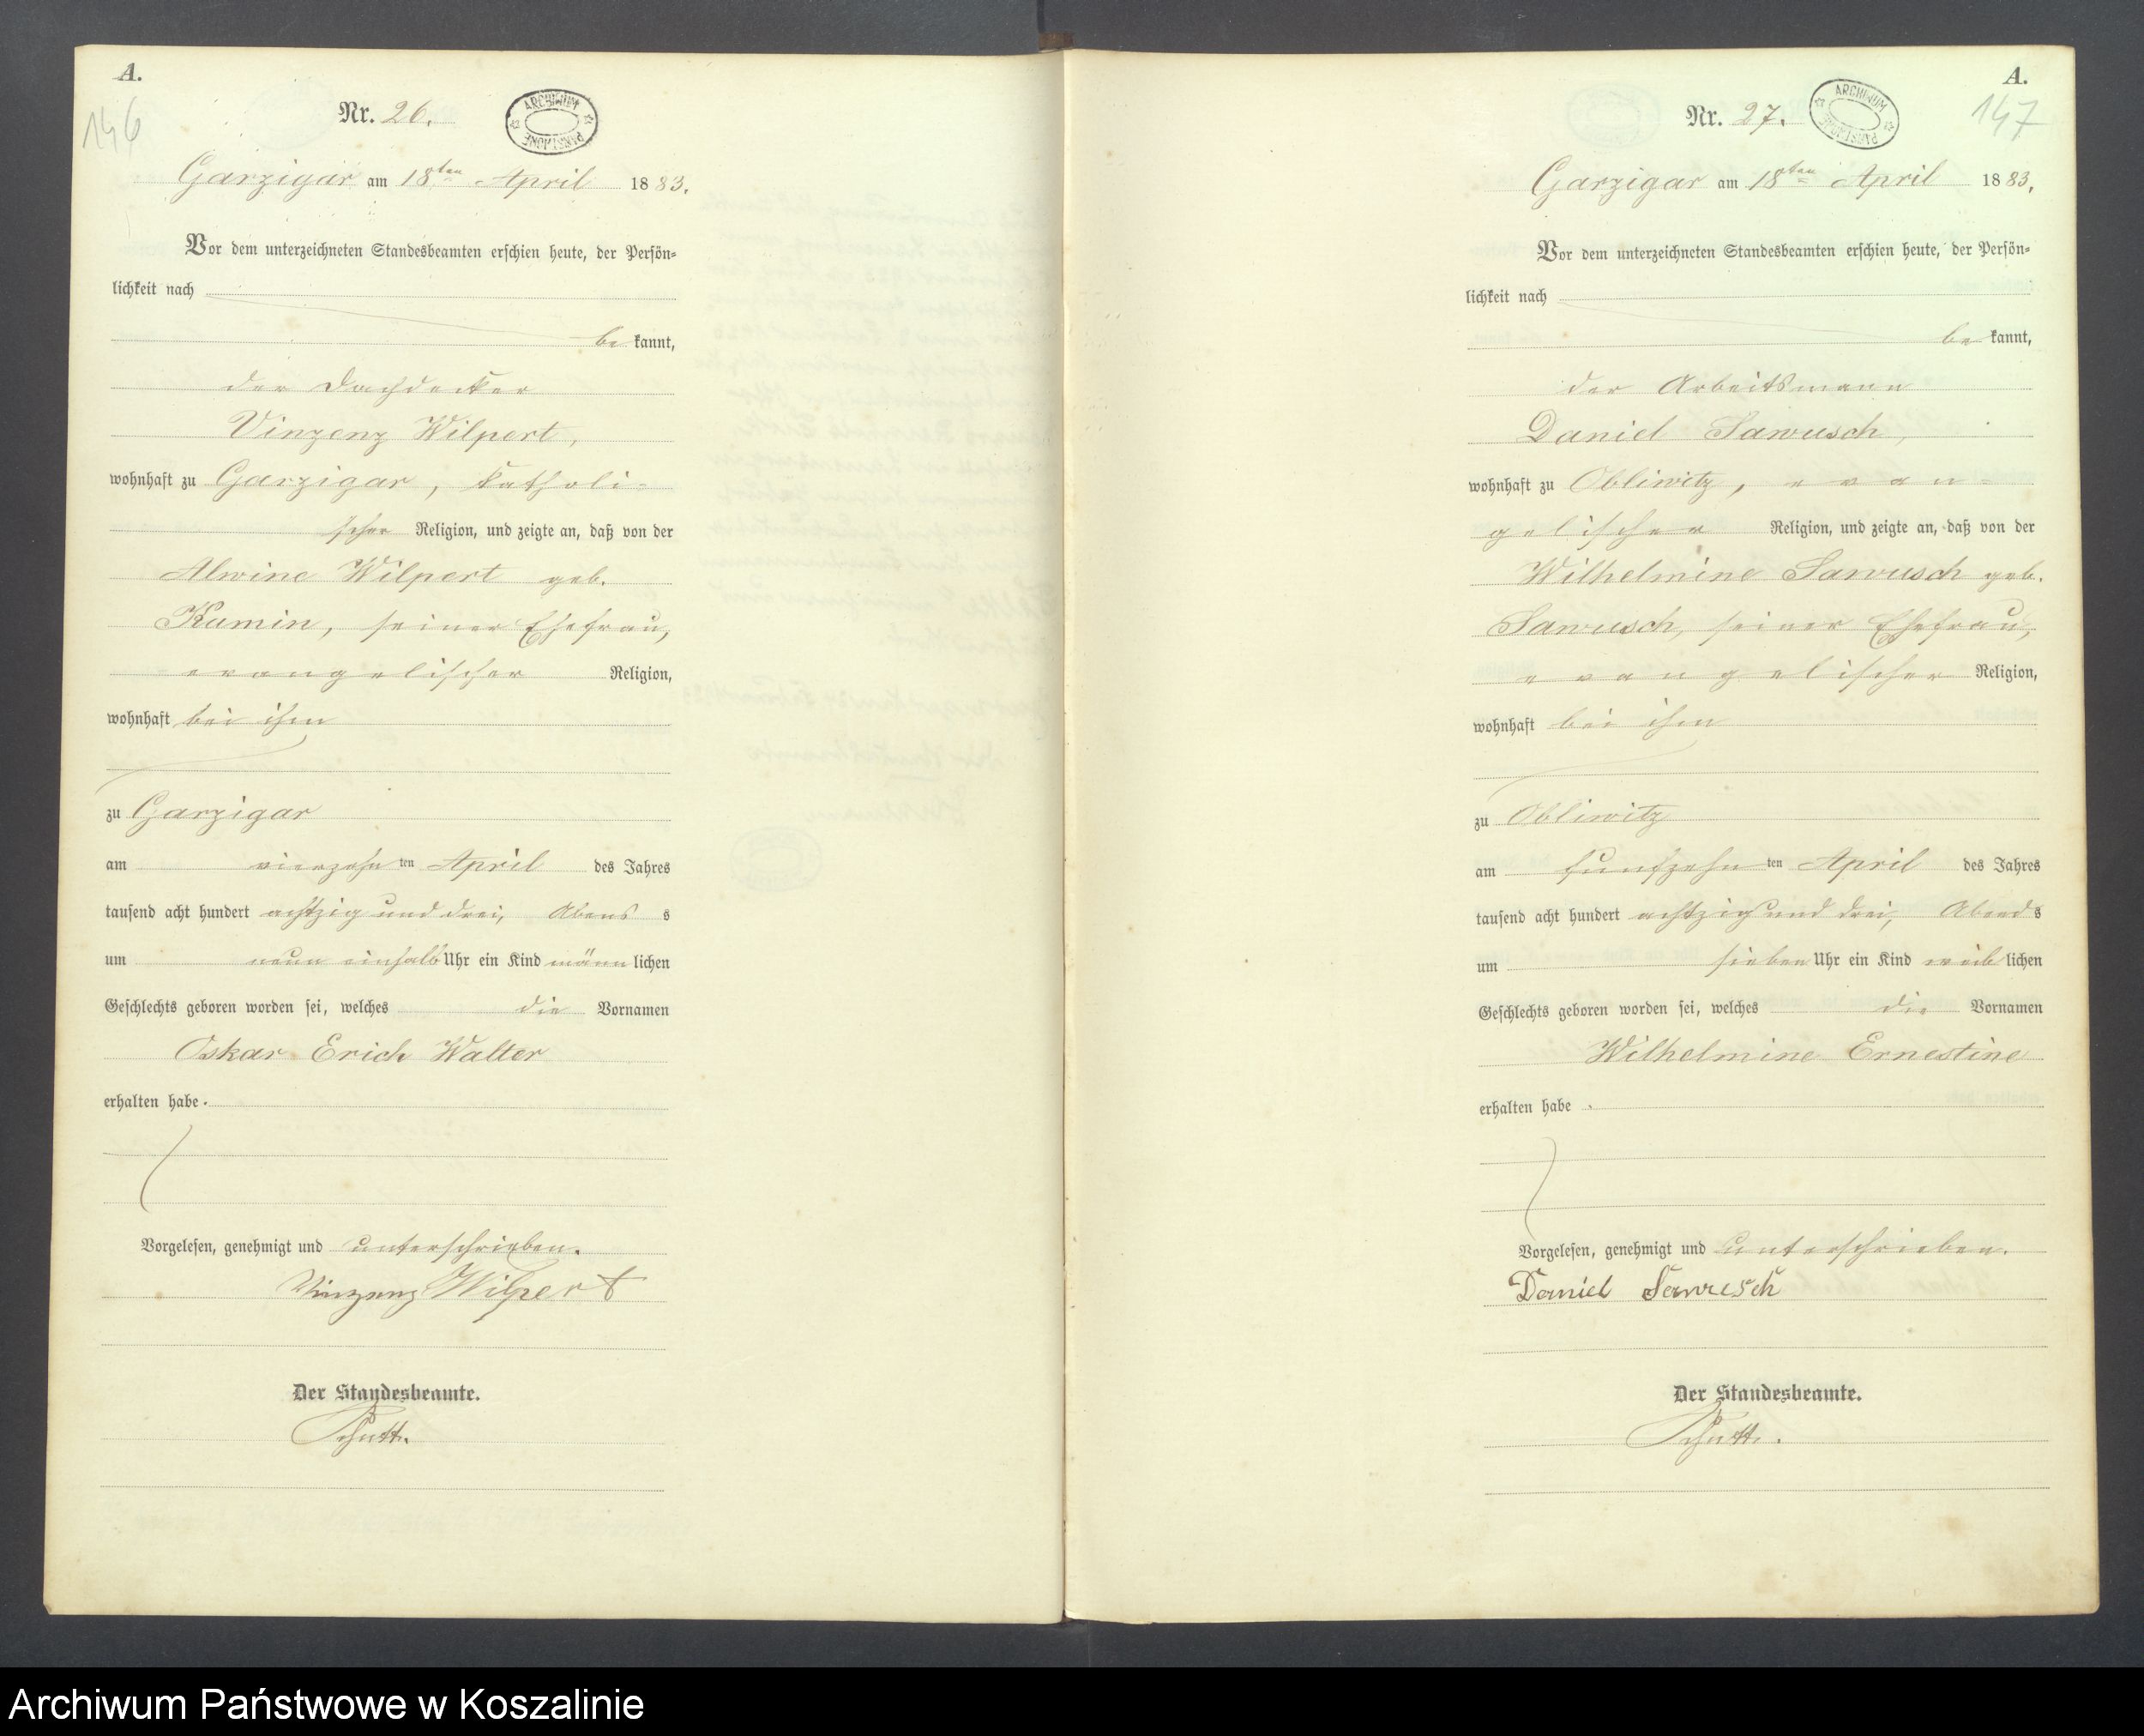 A.
146
Nr. 26.
ARCHIWUM PAŃSTWOWE
Garzigar am 18ten April 1883.
Vor dem unterzeichneten Standesbeamten erschien heute, der Persön-
lichkeit nach
be kannt,
der Dachdecker
Vinzenz Wilpert,
wohnhaft zu Garzigar, katholi-
scher Religion, und zeigte an, daß von der
Alwine Wilpert geb.
Kumin, seiner Ehefrau,
evangelischer Religion,
wohnhaft bei ihm
zu Garzigar
am vierzehn ten April des Jahres
tausend acht hundert achtzig und drei, Abend s
um neun einhalb Uhr ein Kind männ lichen
Geschlechts geboren worden sei, welches die Vornamen
Oskar Erich Walter
erhalten habe.
Vorgelesen, genehmigt und unterschrieben.
Vinzenz Wilpert
Der Standesbeamte.
A.
147
Nr. 27.
ARCHIWUM PAŃSTWOWE
Garzigar am 18ten April 1883.
Vor dem unterzeichneten Standesbeamten erschien heute, der Persön-
lichkeit nach
be kannt,
der Arbeitsmann
Daniel Sawusch,
wohnhaft zu Obliwitz, evan-
gelischer Religion, und zeigte an, daß von der
Wilhelmine Sawusch geb.
Sawusch, seiner Ehefrau,
evangelischer Religion,
wohnhaft bei ihm
zu Obliwitz
am funfzehn ten April des Jahres
tausend acht hundert achtzig und drei, Abend s
um sieben Uhr ein Kind weib lichen
Geschlechts geboren worden sei, welches die Vornamen
Wilhelmine Ernestine
erhalten habe.
Vorgelesen, genehmigt und unterschrieben.
Daniel Sawusch
Der Standesbeamte.
Archiwum Państwowe w Koszalinie